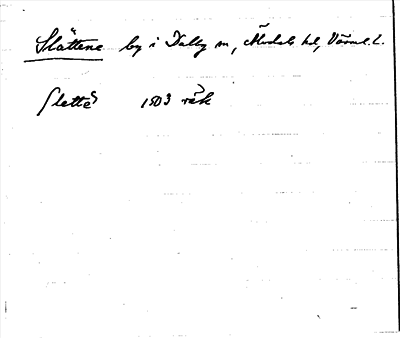 Slättene by i Dalby sn, Älvdals hd, Värml. l.
Slette 1503 räk